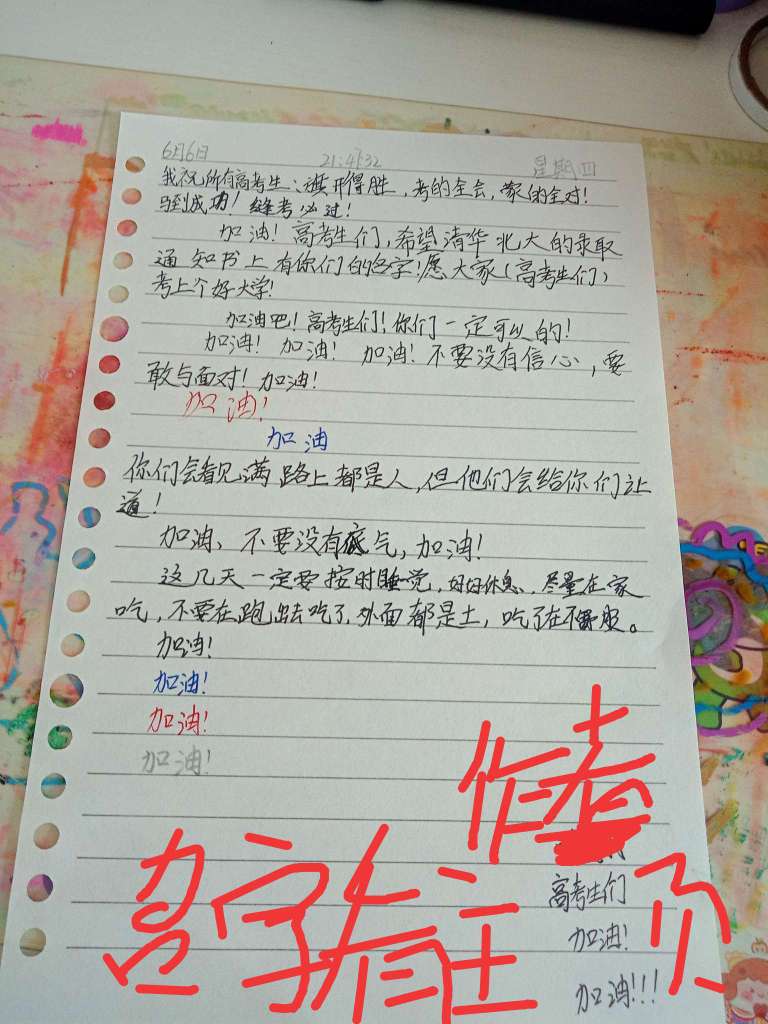 6月6日 21:41:32 星期四
我祝所有高考生:旗开得胜,考的全会,蒙的全对!
马到成功!逢考必过!
加油!高考生们,希望清华北大的录取
通知书上有你们的名字!愿大家(高考生们)
考上个好大学!
加油吧!高考生们!你们一定可以的!
加油!加油!加油!不要没有信心,要
敢与面对!加油!
加油!
加油
你们会看见满路上都是人,但他们会给你们让
道!
加油、不要没有底气,加油!
这几天一定要按时睡觉,好好休息、尽量在家
吃,不要在跑出去吃了,外面都是土,吃了在不舒服。
加油!
加油!
加油!
加油!
作者
名字看主页
高考生们
加油!
加油!!!